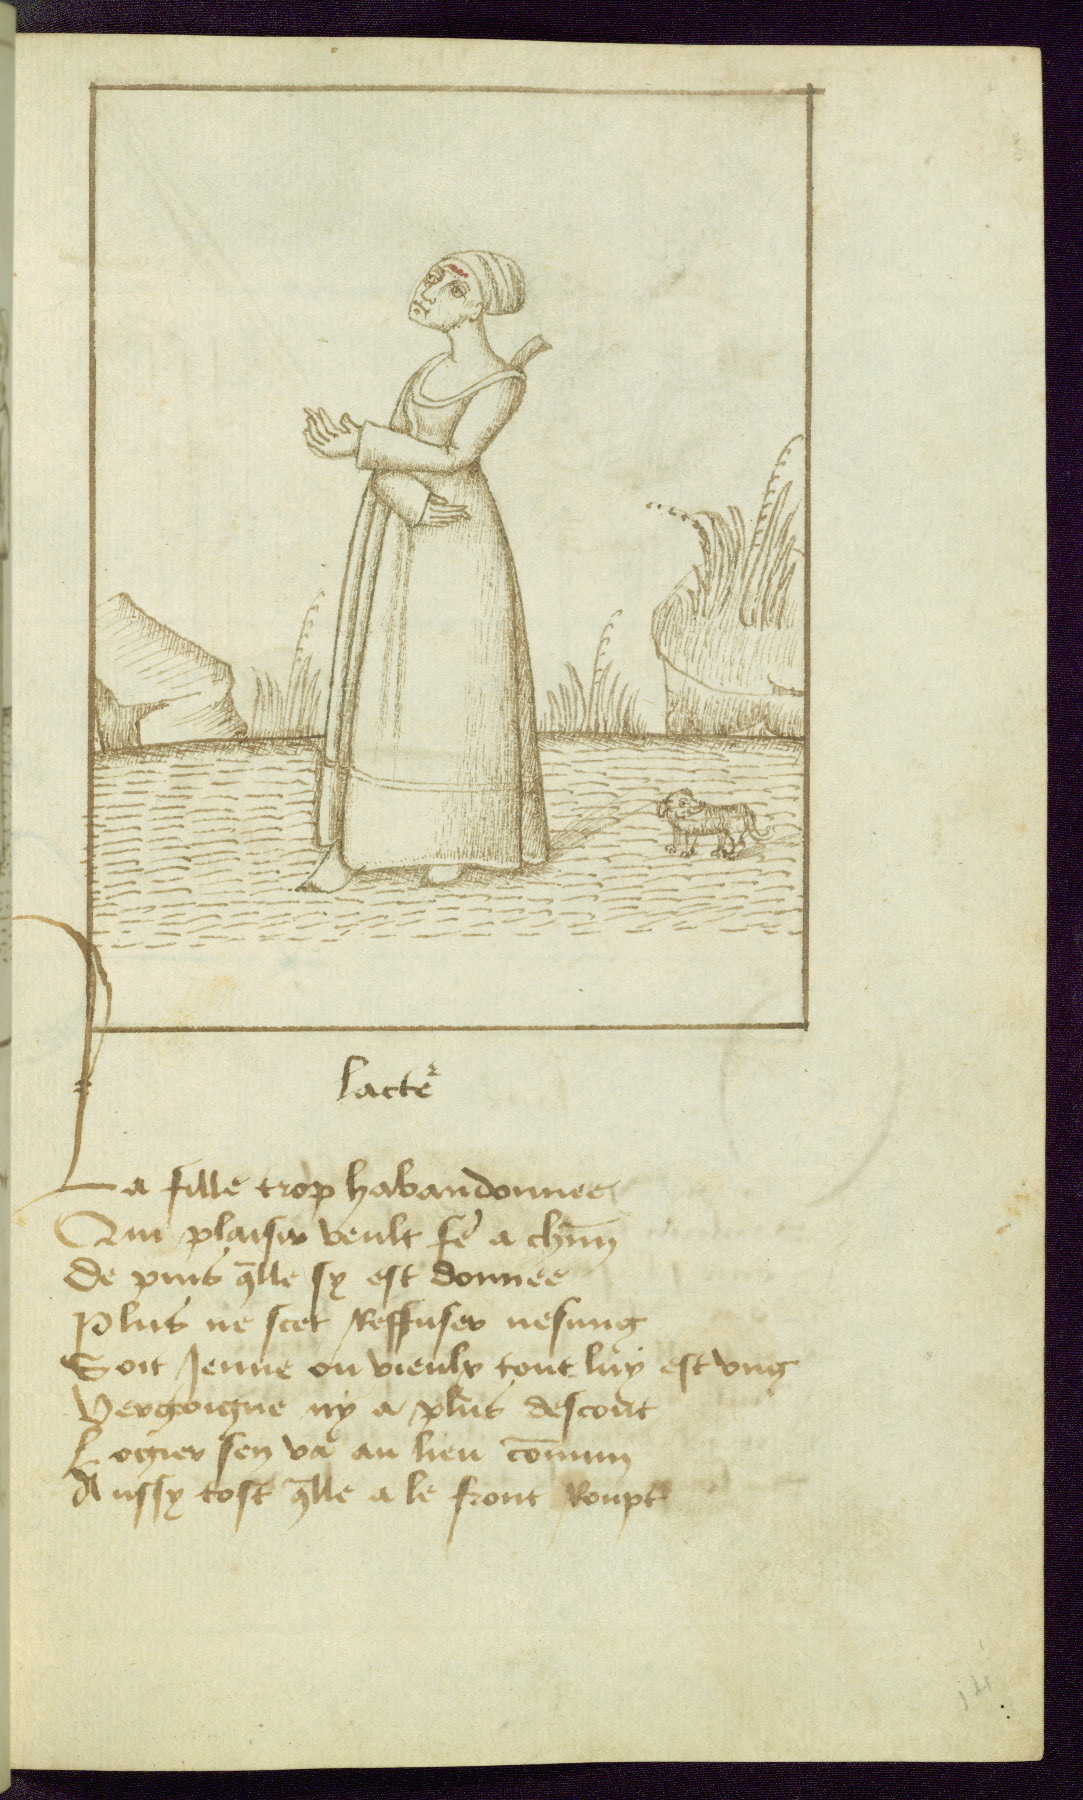 lacteʳ
La fille trop habandonnee
Qui plaisir veult fẽ a chũn
De puis q̃lle sy est donnee
Plus ne scet Reffuser nesung
Soit Jenne ou vieulx tout luy est vng
Vergoigne ny a plus descort
Logier sen va au lieu cõmun
Aussy tost q̃lle a le front Roupt